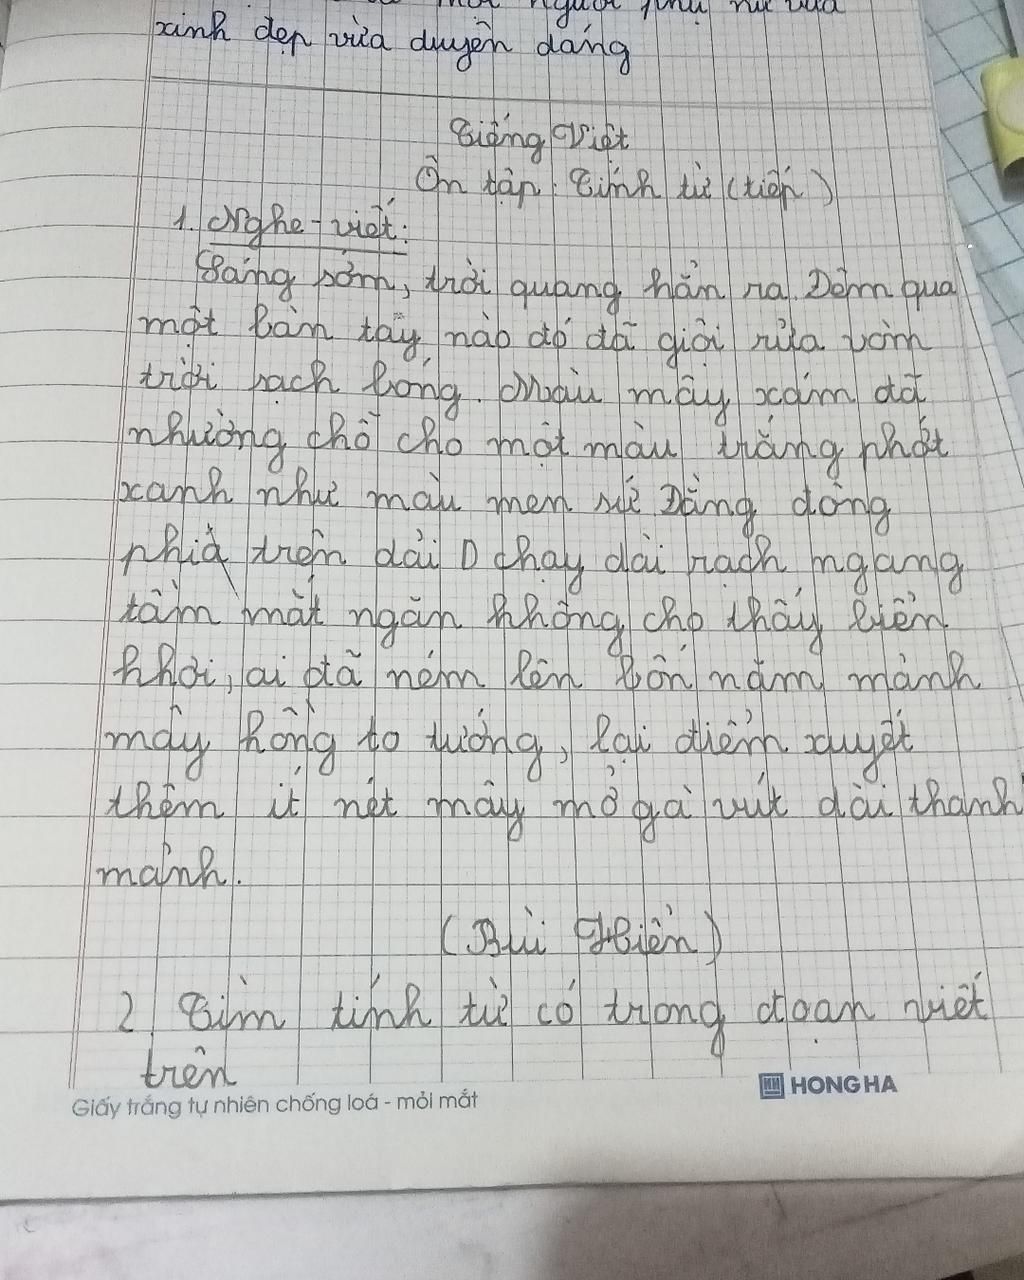 xinh đẹp vừa duyên dáng
Tiếng Việt
Ôn tập: Tính từ (tiếp)
1. Nghe - viết:
Sáng sớm, trời quang hẳn ra. Đêm qua
một bàn tay nào đó đã giội rửa vòm
trời sạch bóng. Màu mây xám đã
nhường chỗ cho một màu trắng phớt
xanh như màu men sứ Đằng đông
phià trên dải D chạy dài rạch ngang
tầm mắt ngăn không cho thấy biển
khơi, ai đã ném lên bốn năm mảnh
mây hồng to tướng, lại điểm xuyết
thêm ít nét mây mỡ gà vút dài thanh
mảnh.
(Bùi Hiển)
2. Tìm tính từ có trong đoạn viết
trên
Giấy trắng tự nhiên chống loá - mỏi mắt
HONG HA